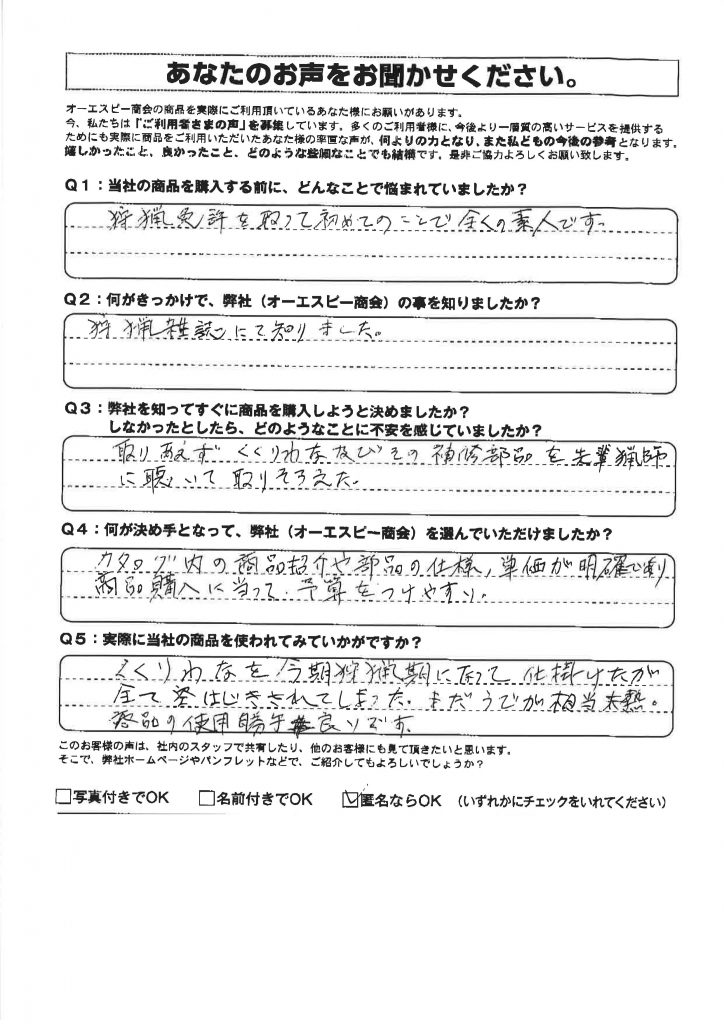 あなたのお声をお聞かせください。
オーエスピー商会の商品を実際にご利用頂いているあなた様にお願いがあります。
今、私たちは「ご利用者さまの声」を募集しています。多くのご利用者様に、今後より一層質の高いサービスを提供する
ためにも実際に商品をご利用いただいたあなた様の率直な声が、何よりの力となり、また私どもの今後の参考となります。
嬉しかったこと、良かったこと、どのような些細なことでも結構です。是非ご協力よろしくお願い致します。
Q1：当社の商品を購入する前に、どんなことで悩まれていましたか？
狩猟免許を取って初めてのことで全くの素人です。
Q2：何がきっかけで、弊社（オーエスピー商会）の事を知りましたか？
狩猟雑誌にて知りました。
Q3：弊社を知ってすぐに商品を購入しようと決めましたか？
しなかったとしたら、どのようなことに不安を感じていましたか？
取りあえず くくりわな及びその補修部品を先輩猟師
に聴いて取りそろえた。
Q4：何が決め手となって、弊社（オーエスピー商会）を選んでいただけましたか？
カタログ内の商品紹介や部品の仕様、単価が明確で
商品購入に当って、予算をつけやすい。
Q5：実際に当社の商品を使われてみていかがですか？
くくりわなを今期狩猟期になって仕掛けたが
全て はじきされてしまった。まだうでが相当未熟。
の使用勝手 良いです。
このお客様の声は、社内のスタッフで共有したり、他のお客様にも見て頂きたいと思います。
そこで、弊社ホームページやパンフレットなどで、ご紹介してもよろしいでしょうか？
□写真付きでOK □名前付きでOK ☑匿名ならOK （いずれかにチェックをいれてください）